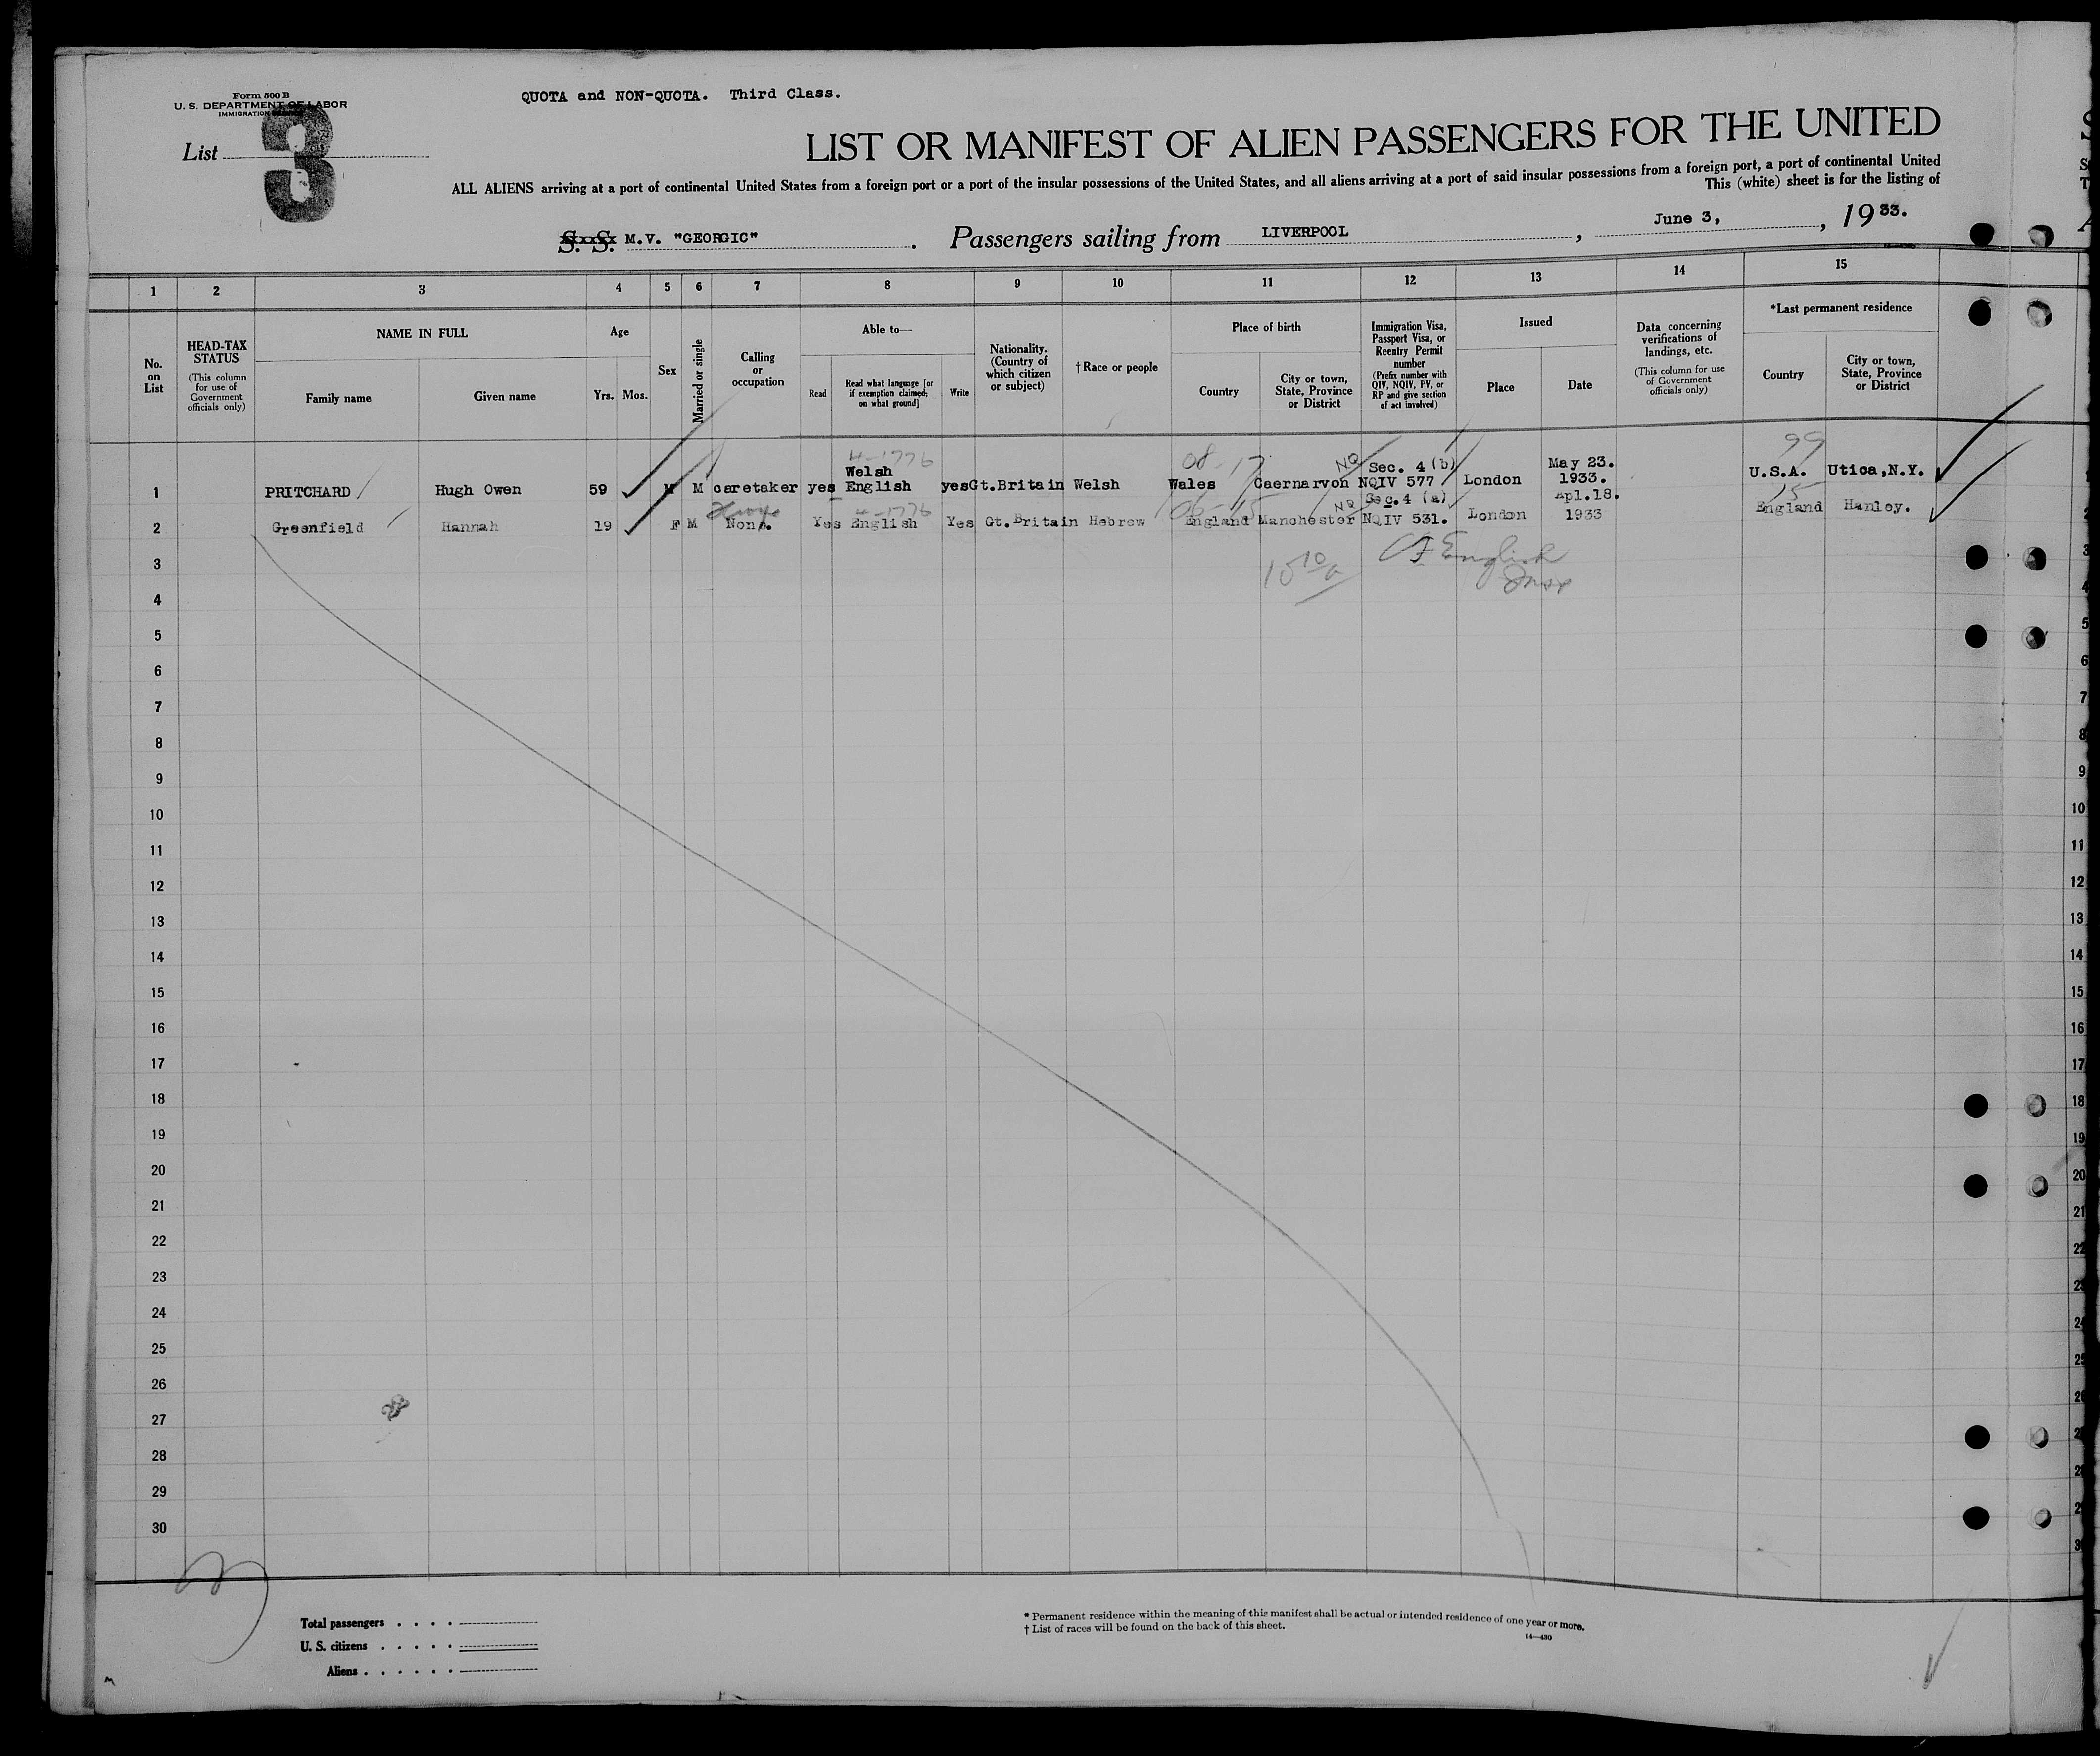 Form 500 B
U. S. DEPARTMENT OF LABOR
IMMIGRATION
QUOTA and NON-QUOTA. Third Class.
List 3
LIST OR MANIFEST OF ALIEN PASSENGERS FOR THE UNITED
ALL ALIENS arriving at a port of continental United States from a foreign port or a port of the insular possessions of the United States, and all aliens arriving at a port of said insular possessions from a foreign port, a port of continental United
This (white) sheet is for the listing of
S. S. M.V. "GEORGIC" . Passengers sailing from LIVERPOOL , June 3, , 19 33.
1 2 3 4 5 6 7 8 9 10 11 12 13 14 15
No. on List
HEAD-TAX STATUS
(This column for use of Government officials only)
NAME IN FULL
Family name
Given name
Age
Yrs. Mos.
Sex
Married or single
Calling or occupation
Able to—
Read
Read what language [or if exemption claimed, on what ground]
Write
Nationality. (Country of which citizen or subject)
† Race or people
Place of birth
Country
City or town, State, Province or District
Immigration Visa, Passport Visa, or Reentry Permit number
(Prefix number with QIV, NQIV, PV, or RP and give section of act involved)
Issued
Place
Date
Data concerning verifications of landings, etc.
(This column for use of Government officials only)
*Last permanent residence
Country
City or town, State, Province or District
4-1776 08-17 NQ 99
Welsh Sec. 4 (b) May 23.
1 PRITCHARD Hugh Owen 59 M M caretaker yes English yes Gt.Britain Welsh Wales Caernarvon NQIV 577 London 1933. U.S.A. Utica,N.Y.
4-1776 06-15 NQ Sec.4 (a) Apl.18. 15
2 Greenfield Hannah 19 F M None. Yes English Yes Gt.Britain Hebrew England Manchester NQIV 531. London 1933 England Hanley.
English
3
4
5
6
7
8
9
10
11
12
13
14
15
16
17
18
19
20
21
22
23
24
25
26
27
28
29
30
Total passengers . . . .
U. S. citizens . . . . .
Aliens . . . . . .
* Permanent residence within the meaning of this manifest shall be actual or intended residence of one year or more.
† List of races will be found on the back of this sheet.
14—430